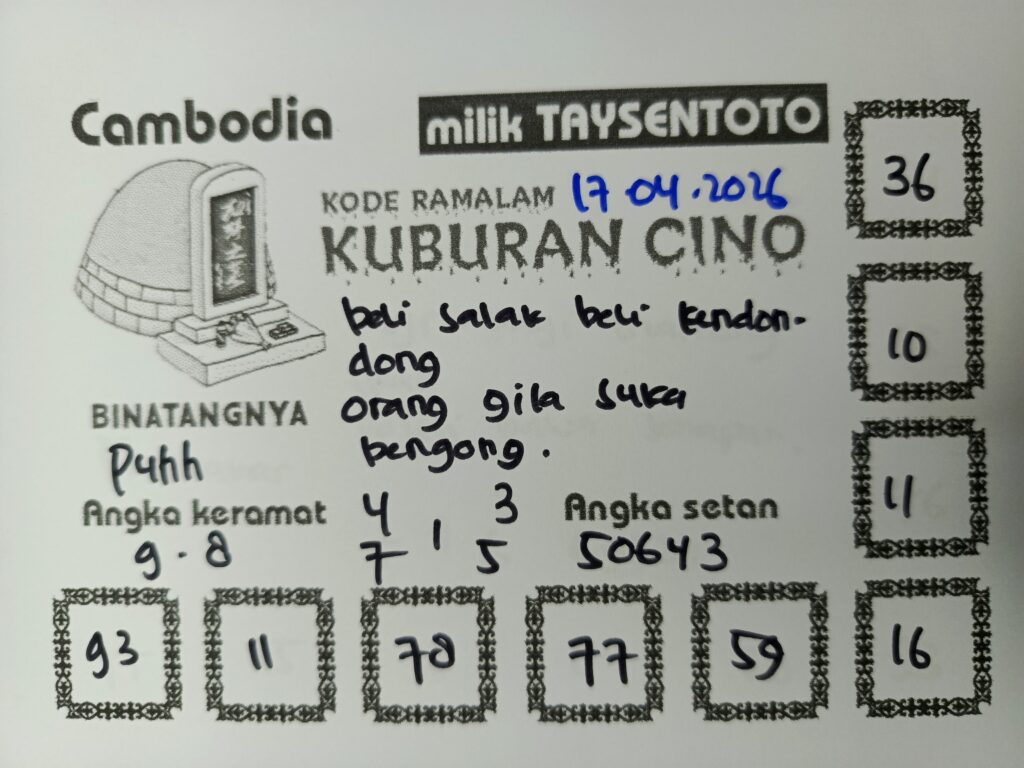 Cambodia
milik TAYSENTOTO
KODE RAMALAM 17 04.2026
KUBURAN CINO
beli salak beli kendon-
dong
orang gila suka
bengong.
BINATANGNYA
Puhh
Angka keramat
9 - 8
4 3
7 1 5
Angka setan
50643
36
10
11
16
93
11
78
77
59